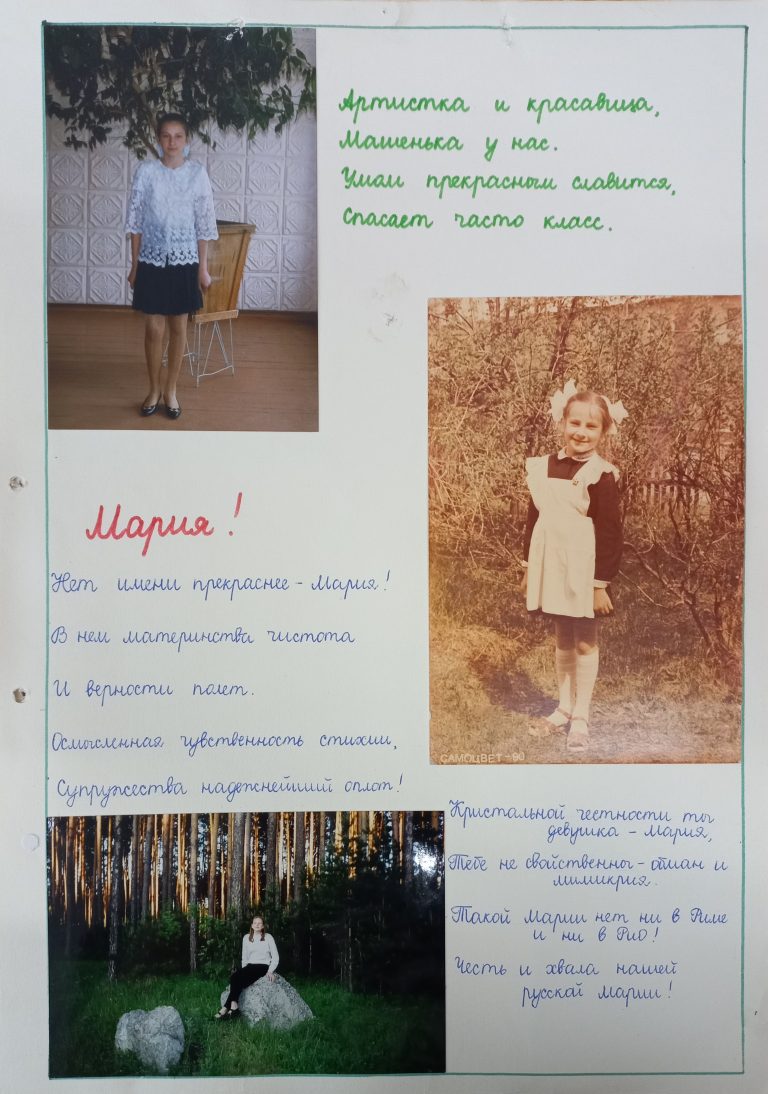 Артистка и красавица,
Машенька у нас.
Умом прекрасным славится,
Спасает часто класс.
САМОЦВЕТ-90
Мария!
Нет имени прекраснее - Мария!
В нем материнства чистота
И верности полет.
Осмысленная чувственность стихии,
Супружества надежнейший оплот!
Кристальной честности ты
девушка - Мария,
Тебе не свойственны - обман и
мимикрия.
Такой Марии нет ни в Риме
и ни в Рио!
Честь и хвала нашей
русской Марии!